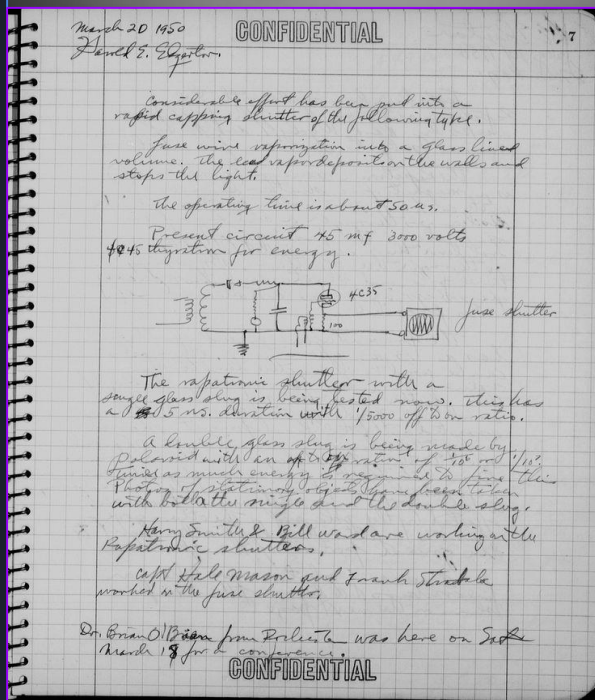 March 20 1950
CONFIDENTIAL
7
Harold E. Edgerton.
Considerable effort has been put into a
rapid capping shutter of the following type.
fuse wire vaporization into a glass lined
volume. The lead vapor deposits on the walls and
stops the light.
The operating time is about 50 us.
Present circuit 45 mf 3000 volts
thyratron for energy.
4C35
100
fuse shutter
The rapatronic shutter with a
single glass slug is being tested now. This has
a 5 us. duration with 1/5000 off to on ratio.
A double glass slug is being made by
Polaroid with an ratio of
times as much energy is required to this
Photos of stationary objects have been taken
with both the single and the double slug.
Harry Smith & Bill Ward are working on the
Rapatronic shutters.
Capt Hale Mason and Frank
worked on the fuse shutter.
Dr. Brian O'Brien from Rochester was here on Sat
March 18 for a conference.
CONFIDENTIAL